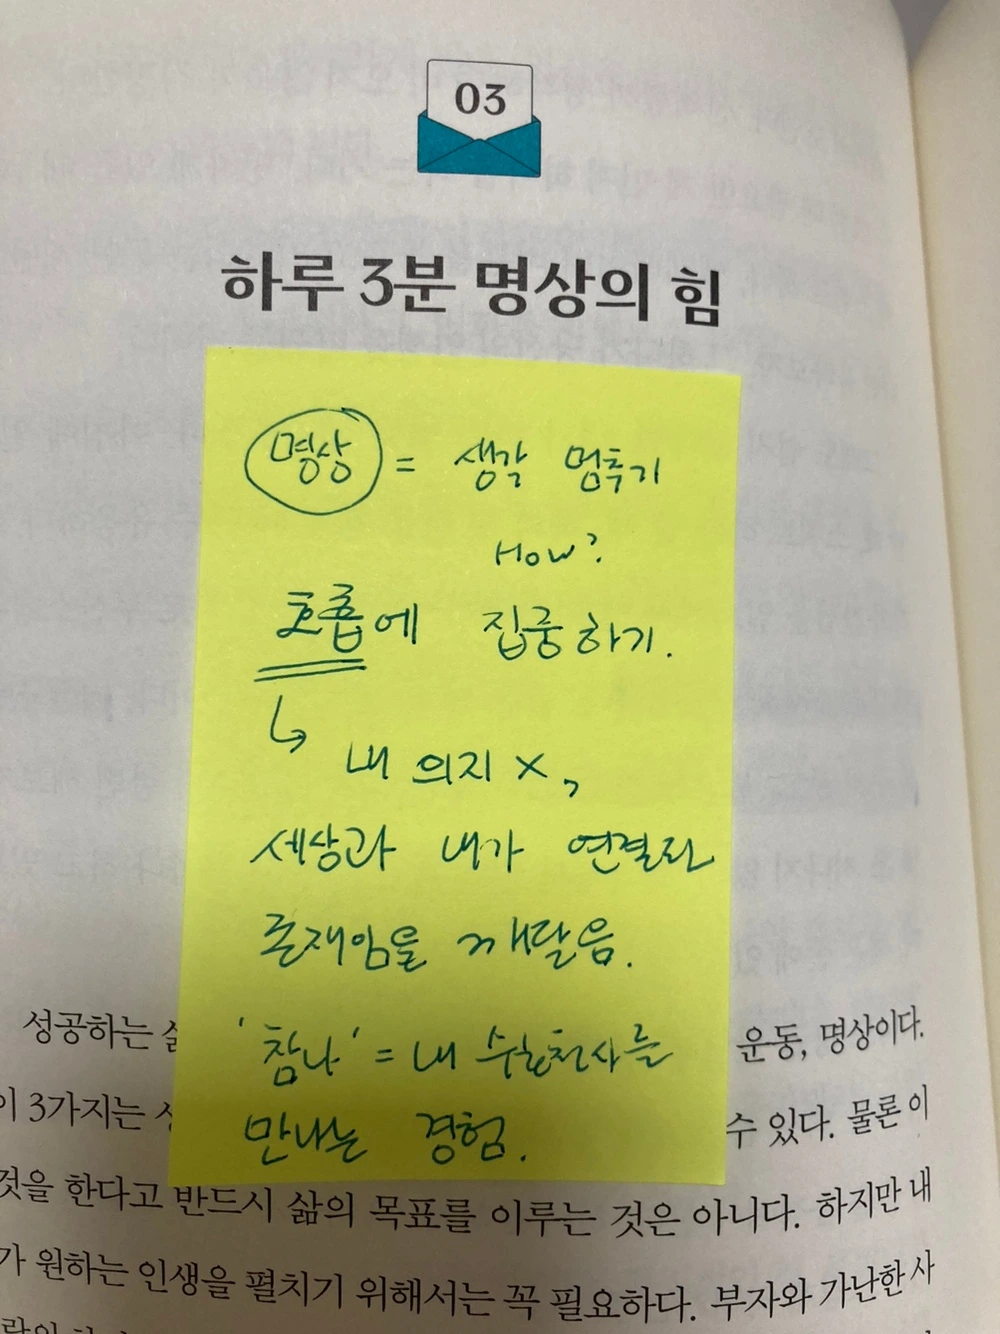 03
하루 3분 명상의 힘
명상 = 생각 멈추기
How?
호흡에 집중하기.
↳ 내 의지 X,
세상과 내가 연결된
존재임을 깨달음.
'참나' = 내 수호천사를
만나는 경험.
성공하는 운동, 명상이다.
이 3가지는 수 있다. 물론 이
것을 한다고 반드시 삶의 목표를 이루는 것은 아니다. 하지만 내
가 원하는 인생을 펼치기 위해서는 꼭 필요하다. 부자와 가난한 사